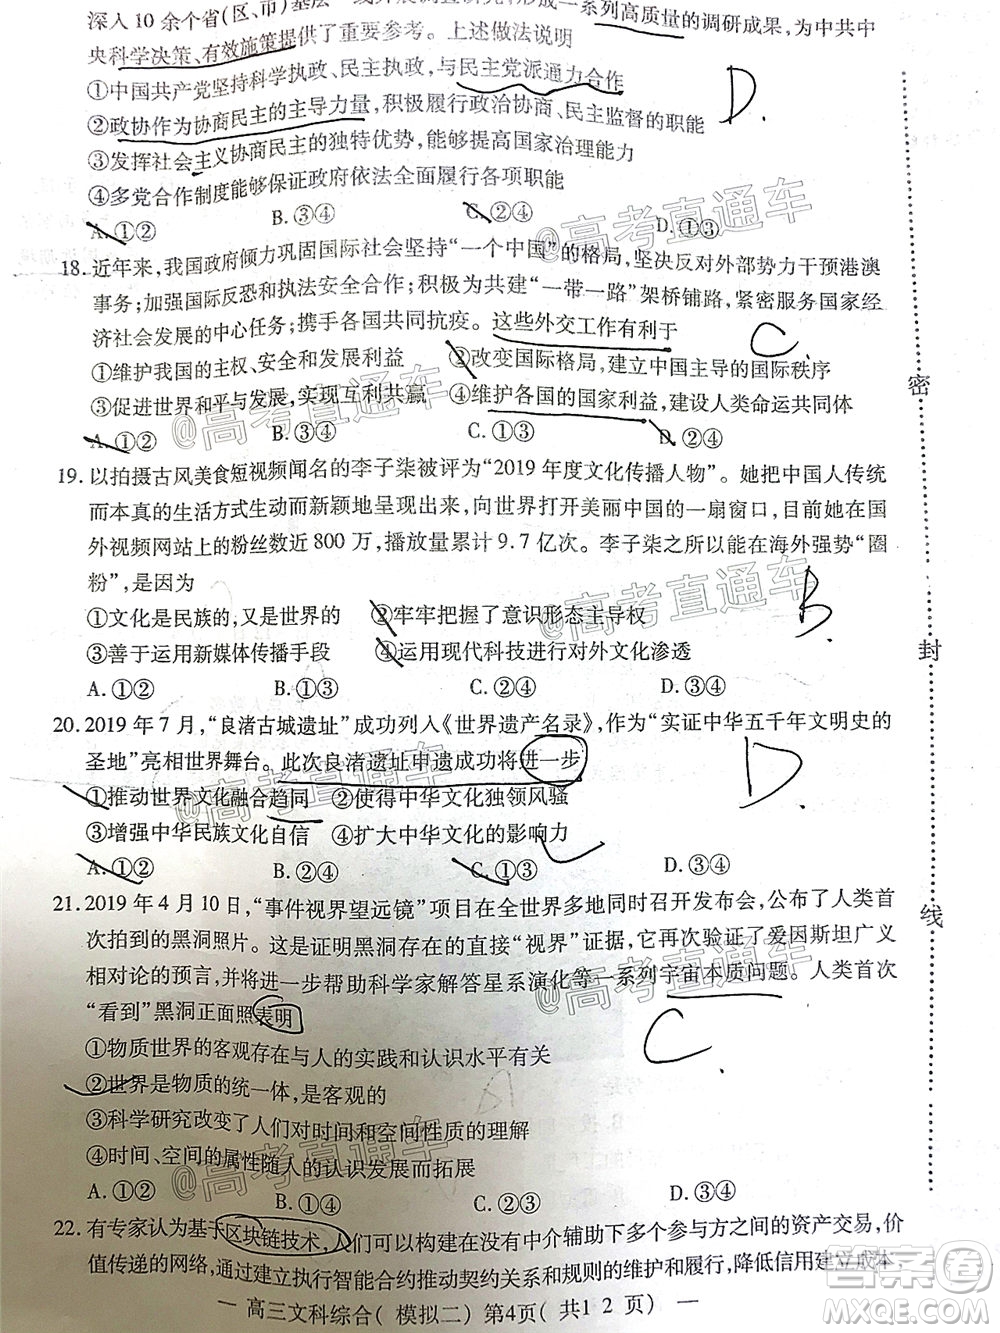 深入 10 余个省(区、市)基层一线开展
形成一系列高质量的调研成果,为中共中
央科学决策、有效施策提供了重要参考。上述做法说明
①中国共产党坚持科学执政、民主执政,与民主党派通力合作
②政协作为协商民主的主导力量,积极履行政治协商、民主监督的职能
③发挥社会主义协商民主的独特优势,能够提高国家治理能力
④多党合作制度能够保证政府依法全面履行各项职能
A.①② B.③④ C.②④ D.①③
D.
18. 近年来,我国政府倾力巩固国际社会坚持“一个中国”的格局,坚决反对外部势力干预港澳
事务;加强国际反恐和执法安全合作;积极为共建“一带一路”架桥铺路,紧密服务国家经
济社会发展的中心任务;携手各国共同抗疫。这些外交工作有利于
C.
①维护我国的主权、安全和发展利益 ②改变国际格局,建立中国主导的国际秩序
③促进世界和平与发展,实现互利共赢 ④维护各国的国家利益,建设人类命运共同体
A.①② B.③④ C.①③ D.②④
19. 以拍摄古风美食短视频闻名的李子柒被评为“2019 年度文化传播人物”。她把中国人传统
而本真的生活方式生动而新颖地呈现出来,向世界打开美丽中国的一扇窗口,目前她在国
外视频网站上的粉丝数近 800 万,播放量累计 9.7 亿次。李子柒之所以能在海外强势“圈
粉”,是因为
①文化是民族的,又是世界的 ②牢牢把握了意识形态主导权
B.
③善于运用新媒体传播手段 ④运用现代科技进行对外文化渗透
A.①② B.①③ C.②④ D.③④
20. 2019 年 7 月,“良渚古城遗址”成功列入《世界遗产名录》,作为“实证中华五千年文明史的
圣地”亮相世界舞台。此次良渚遗址申遗成功将进一步
D.
①推动世界文化融合趋同 ②使得中华文化独领风骚
③增强中华民族文化自信 ④扩大中华文化的影响力
A.①② B.②④ C.①③ D.③④
21. 2019 年 4 月 10 日,“事件视界望远镜”项目在全世界多地同时召开发布会,公布了人类首
次拍到的黑洞照片。这是证明黑洞存在的直接“视界”证据,它再次验证了爱因斯坦广义
相对论的预言,并将进一步帮助科学家解答星系演化等一系列宇宙本质问题。人类首次
“看到”黑洞正面照表明
C.
①物质世界的客观存在与人的实践和认识水平有关
②世界是物质的统一体,是客观的
③科学研究改变了人们对时间和空间性质的理解
④时间、空间的属性随人的认识发展而拓展
A.①② B.①④ C.②③ D.③④
22. 有专家认为基于区块链技术,人们可以构建在没有中介辅助下多个参与方之间的资产交易,价
值传递的网络,通过建立执行智能合约推动契约关系和规则的维护和履行,降低信用建立成本
— 高三文科综合( 模拟二) 第4页( 共1 2 页) —
密
封
线
@高考直通车
@高考直通车
@高考直通车
@高考直通车
@高考直通车
@高考直通车
@高考直通车
答案圈
MXQE.COM